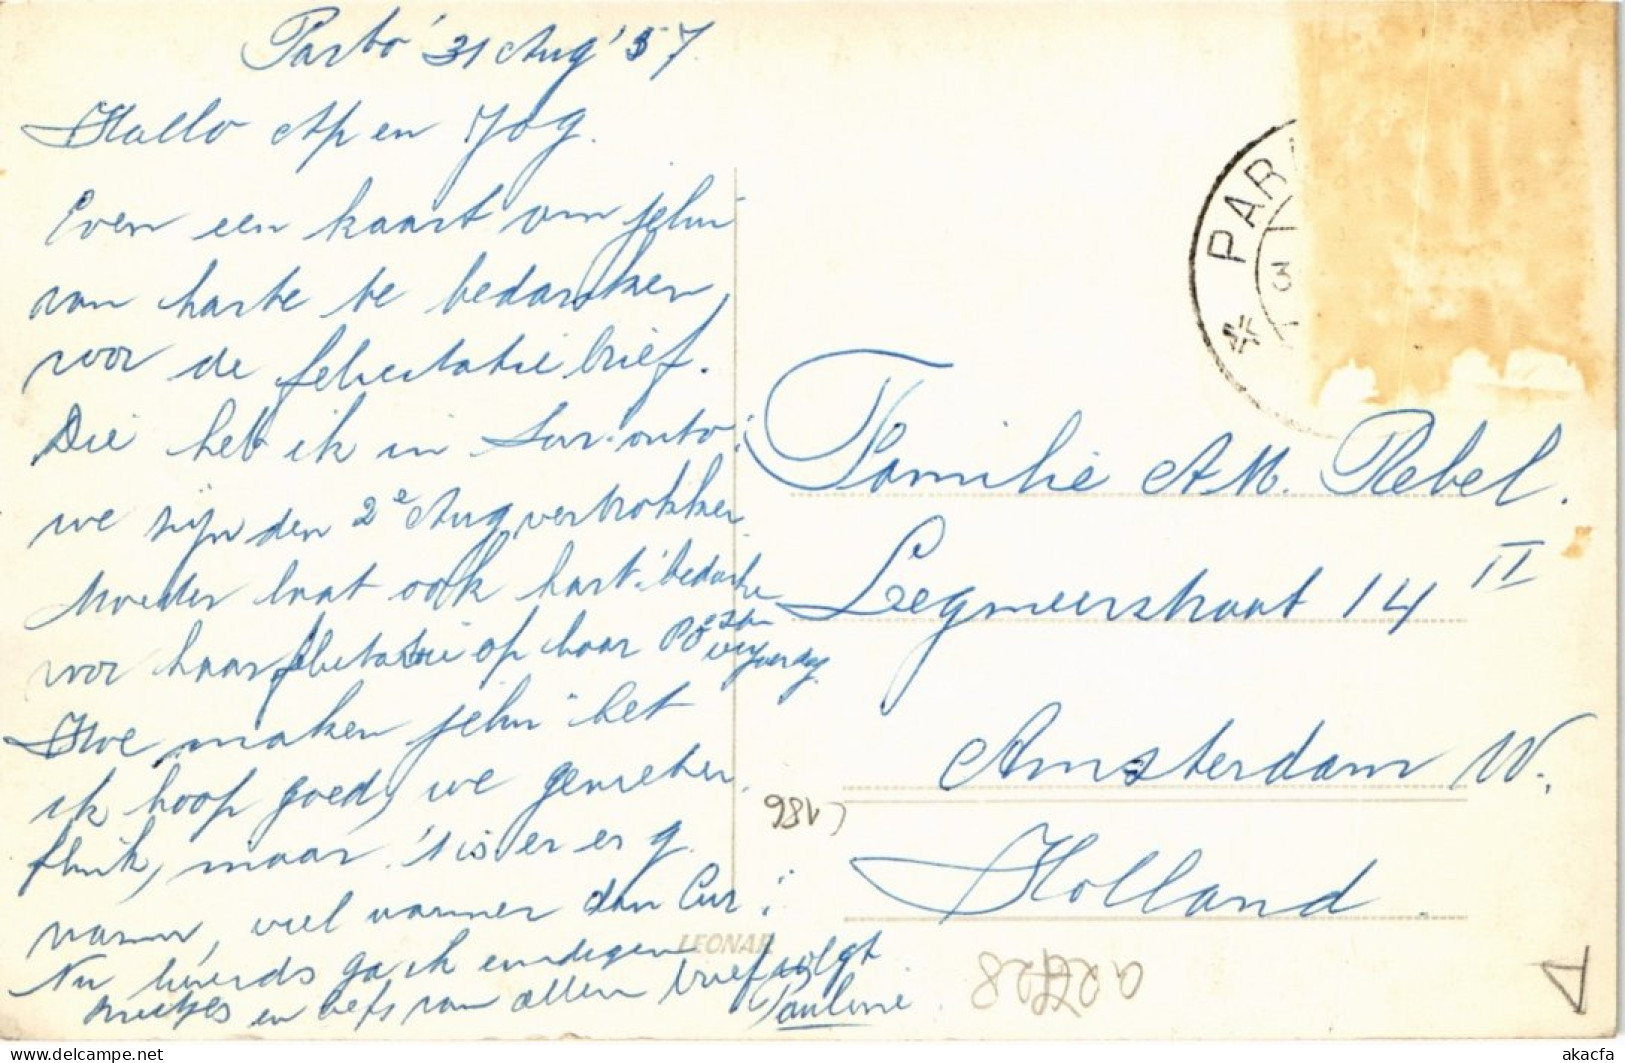 Parbo '31 Aug '57.
Hallo Ap en Jog.
Even een kaart om jelui
van harte te bedanken,
voor de felicitatie brief.
Die heb ik in Sur. ontv:
we zijn den 2e Aug vertrokken
Moeder laat ook hart. bedanke
voor haar felicitatie op haar
verjaardag.
Hoe maken jelui het
ik hoop goed, we genieten
flink, maar 't is er erg
warm, viel warmer dan Cur:
Nu luierds ga ik eindigen
en liefs van allen brief volgt
Pauline
PARA
3
Familie A.M. Rebel.
Legmeerstraat 14 II
Amsterdam W.
Holland.
C186
LEONAR
a2428
akacfa delcampe.net